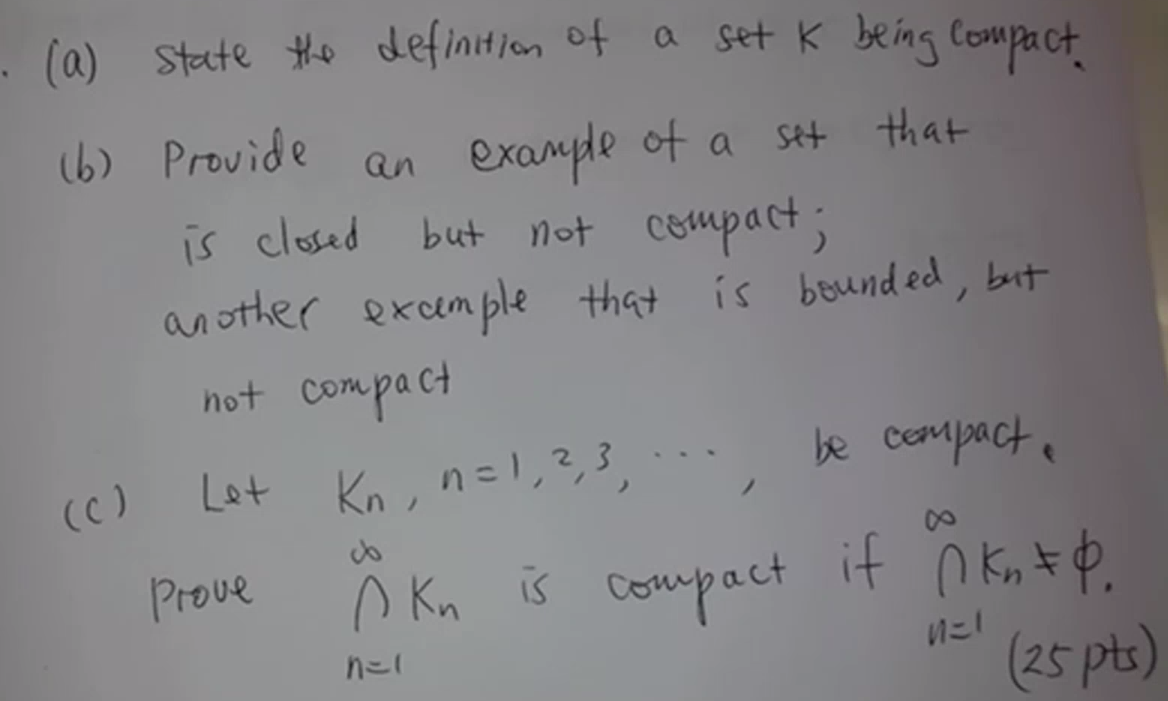 . (a) state the definition of a set K being compact.
(b) Provide an example of a set that
is closed but not compact;
another example that is bounded, but
not compact
(c) Let Kn, n=1, 2, 3, ..., be compact.
∞ ∞
Prove ∩ Kn is compact if ∩ Kn ≠ ϕ.
n=1 n=1
(25 pts)